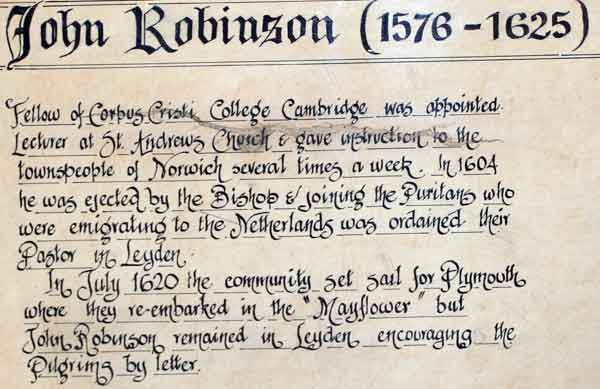 John Robinson (1576 - 1625)
Fellow of Corpus Cristi College Cambridge was appointed
Lecturer at St. Andrews Church & gave instruction to the
townspeople of Norwich several times a week. In 1604
he was ejected by the Bishop & joining the Puritans who
were emigrating to the Netherlands was ordained their
Pastor in Leyden.
In July 1620 the community set sail for Plymouth
where they re-embarked in the "Mayflower" but
John Robinson remained in Leyden encouraging the
Pilgrims by letter.